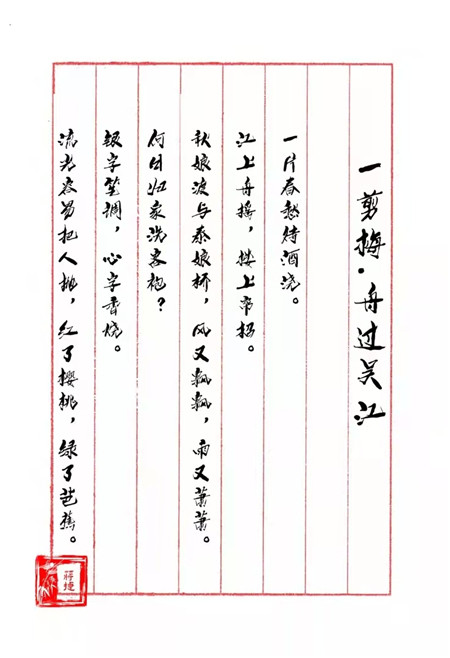 一剪梅·舟过吴江
一片春愁待酒浇。
江上舟摇，楼上帘招。
秋娘渡与泰娘桥，风又飘飘，雨又萧萧。
何日归家洗客袍？
银字笙调，心字香烧。
流光容易把人抛，红了樱桃，绿了芭蕉。
蔣捷